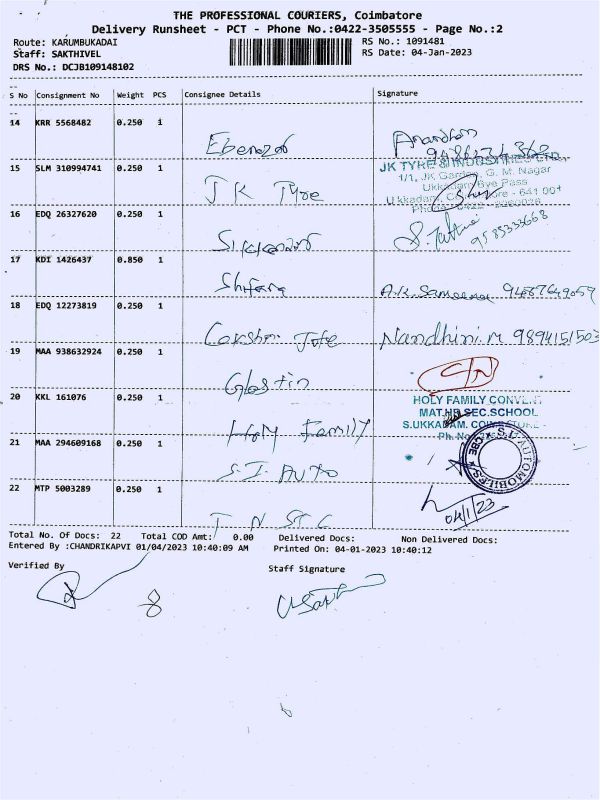 THE PROFESSIONAL COURIERS, Coimbatore
Delivery Runsheet - PCT - Phone No.:0422-3505555 - Page No.:2
Route: KARUMBUKADAI
RS No.: 1091481
Staff: SAKTHIVEL
RS Date: 04-Jan-2023
DRS No.: DCJB109148102
S No Consignment No Weight PCS Consignee Details Signature
14 KRR 5568482 0.250 1
Ebenezer
15 SLM 310994741 0.250 1
JK TYRE & INDUSTRIES LTD
1/1, JK Garden, G. M. Nagar
Ukkadam Bye Pass
J K Tyre
16 EDQ 26327620 0.250 1
9585333668
17 KDI 1426437 0.850 1
Shifana
A.K. Sameena 9487649059
18 EDQ 12273819 0.250 1
Nandhini.M 9894151503
19 MAA 938632924 0.250 1
C/N
20 KKL 161076 0.250 1
HOLY FAMILY CONVENT
MAT.HR.SEC.SCHOOL
S.UKKADAM. COIMBATORE -
Ph. No
Holy Family
21 MAA 294609168 0.250 1
S.I. AUTOMOBILES
CBE
S.I. AUTO
22 MTP 5003289 0.250 1
04/1/23
T N S T C
Total No. Of Docs: 22 Total COD Amt: 0.00 Delivered Docs: Non Delivered Docs:
Entered By :CHANDRIKAPVI 01/04/2023 10:40:09 AM Printed On: 04-01-2023 10:40:12
Verified By Staff Signature